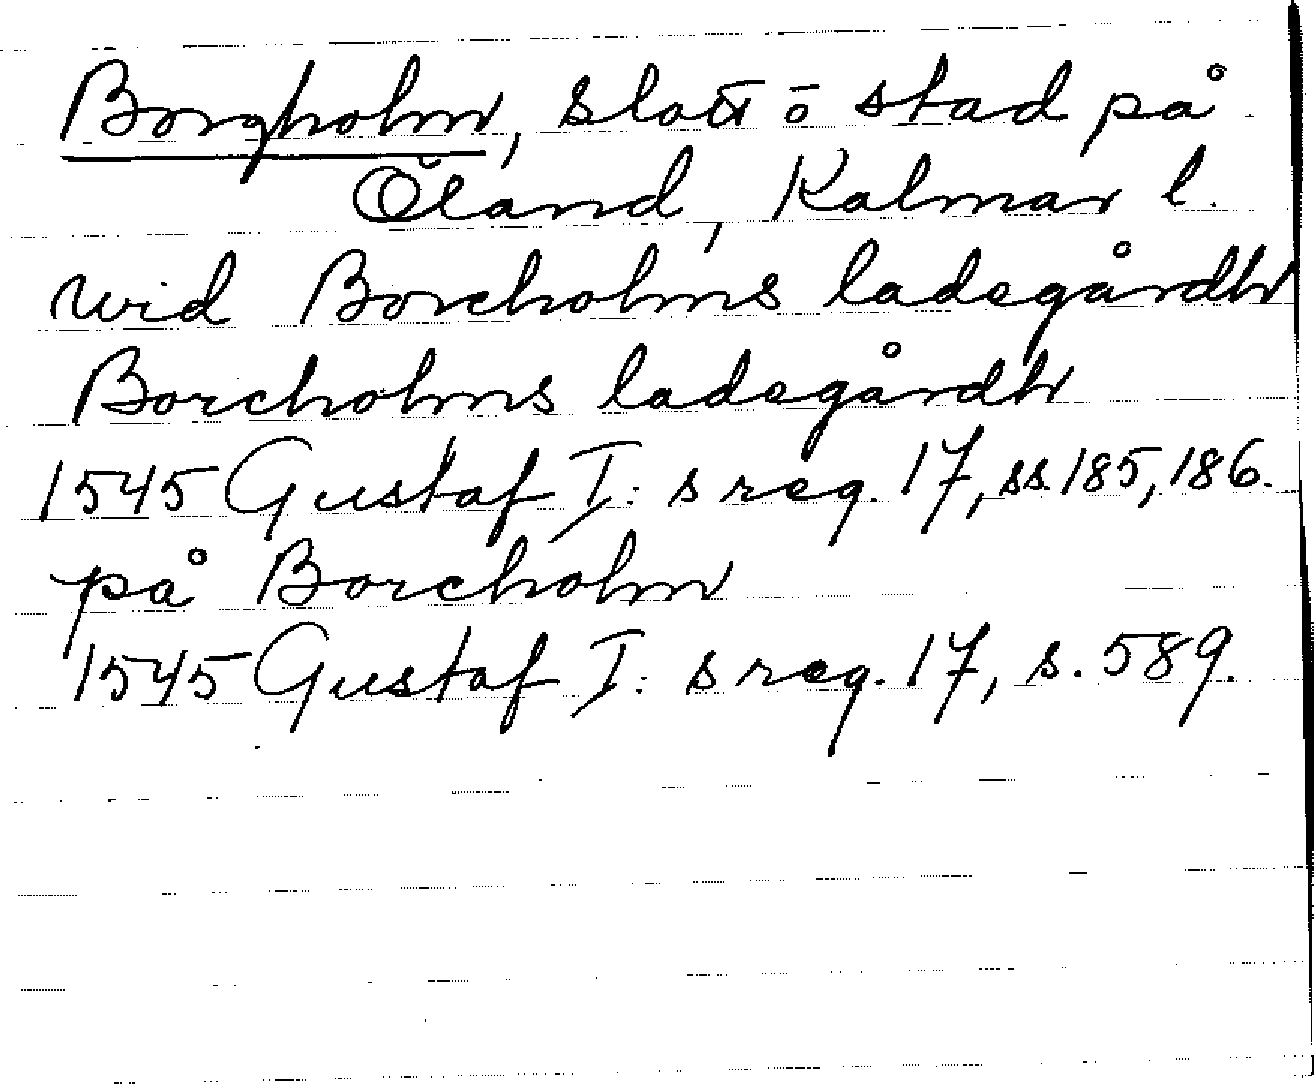 Borgholm, slott ō stad på
Öland, Kalmar l.
wid Borcholms ladegårdh
Borcholms ladegårdh
1545 Gustaf I: s reg. 17, ss. 185, 186.
på Borcholm
1545 Gustaf I: s reg. 17, s. 589.